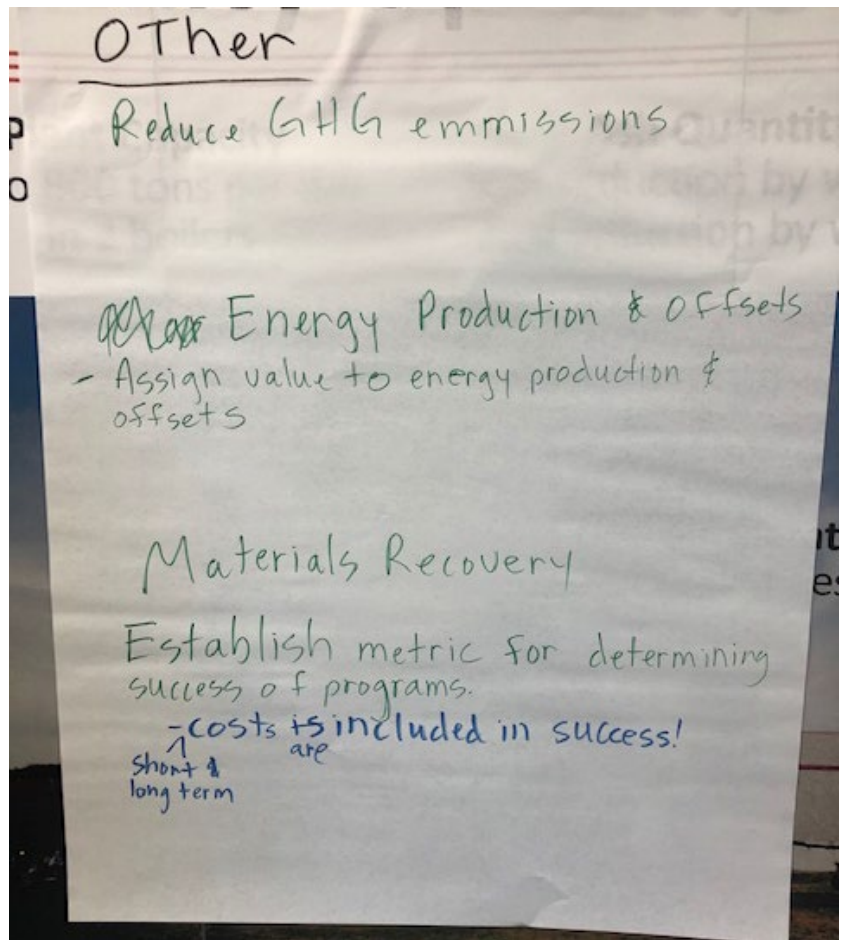 OTher
Reduce GHG emmissions
Energy Production & Offsets
- Assign value to energy production &
offsets
Materials Recovery
Establish metric for determining
success of programs.
- costs is included in success!
are
short &
long term